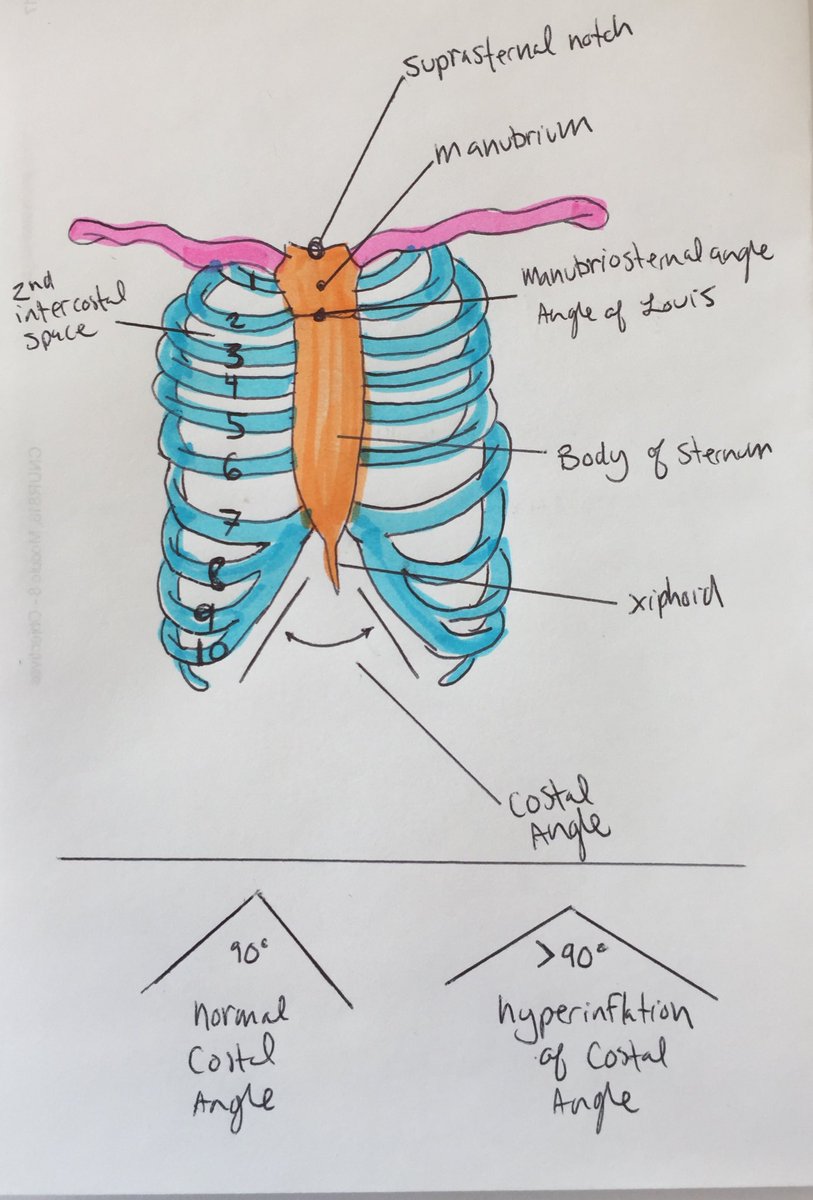 Suprasternal notch
manubrium
manubriosternal angle
Angle of Louis
2nd
intercostal
space
1
2
3
4
5
6
7
8
9
10
Body of Sternum
xiphoid
Costal
Angle
90°
normal
Costal
Angle
>90°
hyperinflation
of Costal
Angle